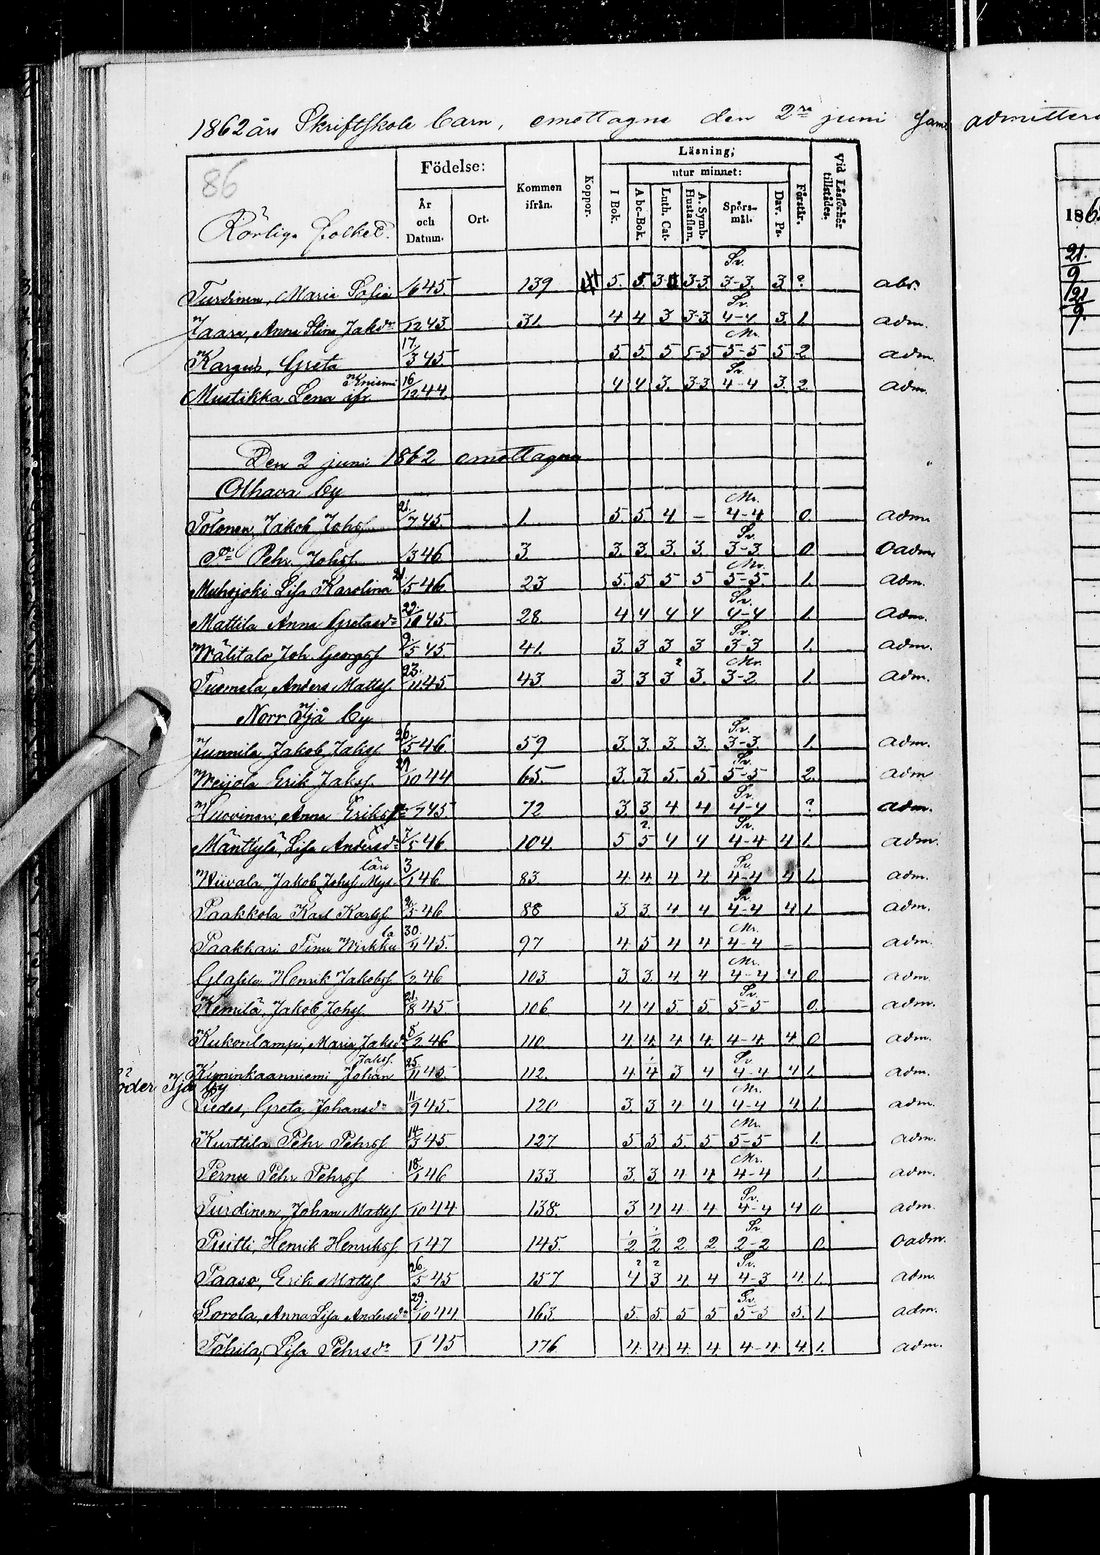 1862 års Skriftskole barn, emottagne den 2ra juni samt admitter
86
Rörliga folket.
Födelse:
År och Datum.
Ort.
Kommen ifrån.
Koppor.
Läsning;
utur minnet:
I Bok.
Abc-Bok.
Luth. Cat.
A. Symb. Hustaflan.
Spörsmål.
Dav. Ps.
Förstår.
Vid Läsförhör tillstädes.
186
Turdinen, Maria Sofia 1/6 45 139 5. 5. 3 3-3 Sv. 3-3 3 ? abs.
Haara, Anna Stina Jaksdr 1/12 43 31 4 4 3 3-3 Sv. 4-4 3. 1 adm.
Kargus, Greta 17/3 45 5 5. 5 5-5 Mr. 5-5 5 2 adm.
Mustikka Lena 16/12 44 4 4 3. 3-3 Sv. 4-4 3. 2 adm.
Den 2 juni 1862 emottagne
Olhava by
Tolonen, Jakob Johsf 21/7 45 1 5. 5. 4 – Mr. 4-4 0. adm
Do Pehr Johsf 1/3 46 3 3. 3. 3. 3. Sv. 3-3. 0 oadm
Muhojoki Lisa Karolina 21/5 46 23 5. 5 5 5 Mr. 5-5. 1. adm.
Mattila Anna Gretasdr 22/10 45 28 4 4 4 4 Sv. 4-4 1. adm.
Wälitalo Joh. Georgsf 9/5 45 41 3 3 3 3 Sv. 3-3 1. adm.
Tuomela, Anders Mattsf 23/11 45 43 3 3 3 ? 3. Mr. 3-2 1. adm.
Norr Ijå by
Junnila, Jakob Jaksf 20/5 46 59 3. 3. 3. 3. Sv. 3-3 1. adm.
Weijola Erik Jaksf 29/10 44 65 3. 3 5. 5 Sv. 5-5 2. adm
Kuovinen, Anna Eriksdr 45 72 3. 3 4 4 Sv. 4-4 ? adm.
Mänttylä, Lisa Andersdr 7/5 46 104 5 5 ? 4 4 Sv. 4-4 4 1. adm.
Wiivala, Jakob Johsf 3/1 46 83 4 4 4 4 Sv. 4-4 4 1. adm.
Paakkola Karl Karlsf 2/5 46 88 3 3. 4 4 Sv. 4-4 4 1. adm.
Paakkari Tinu Wirkkula 30/11 45. 97 4. 5 4 4 Mr. 4-4 – adm.
Henrik Jakobsf 1/2 46 103 3. 3. 4 4 Mr. 4-4 4 0 adm.
Kemilä, Jakob Johsf 21/8 45 106 4 4 5. 5 Sv. 5-5 0. adm.
Kukonlampi, Maria Jaksdr 8/2 46 110 4. 4. 4. 4. 4-4 4. 0 adm.
Kiminkaanniemi Johan Jaksf 25/11 45 112. 4. 4 3 4 Sv. 4-4 4 1. adm.
Söder Ijå by
Liedes, Greta Johansdr 11/9 45. 120 3. 3 4 4 Mr. 4-4 4 1. adm.
Kurttila Pehr Pehrsf 14/3 45 127 5 5 5 5 Mr. 5-5 1. adm.
Pernu Pehr Pehrsf 18/1 46 133 3. 3. 4 4 Mr. 4-4 1. adm.
Turdinen, Johan Mattsf 1/10 44 138. 3 4 4 4 Sv. 4-4 4 0 adm.
Pisitti, Henrik Henriksf 1/1 47 145. 2 2 2 2 Sv 2-2 0 oadm.
Paaso, Erik Mattsf 26/5 45 157 4 3 4 4 Sv. 4-3 4. 1. adm.
Sorola, Anna Lisa Andersdr 29/10 44 163. 5. 5. 5 5 Sv. 5-5 5. 1. adm.
Tohila, Lisa Pehrsdr 1/1 45 176 4. 4. 4. 4 4-4. 4. 1. adm.
21.
9
21
9.